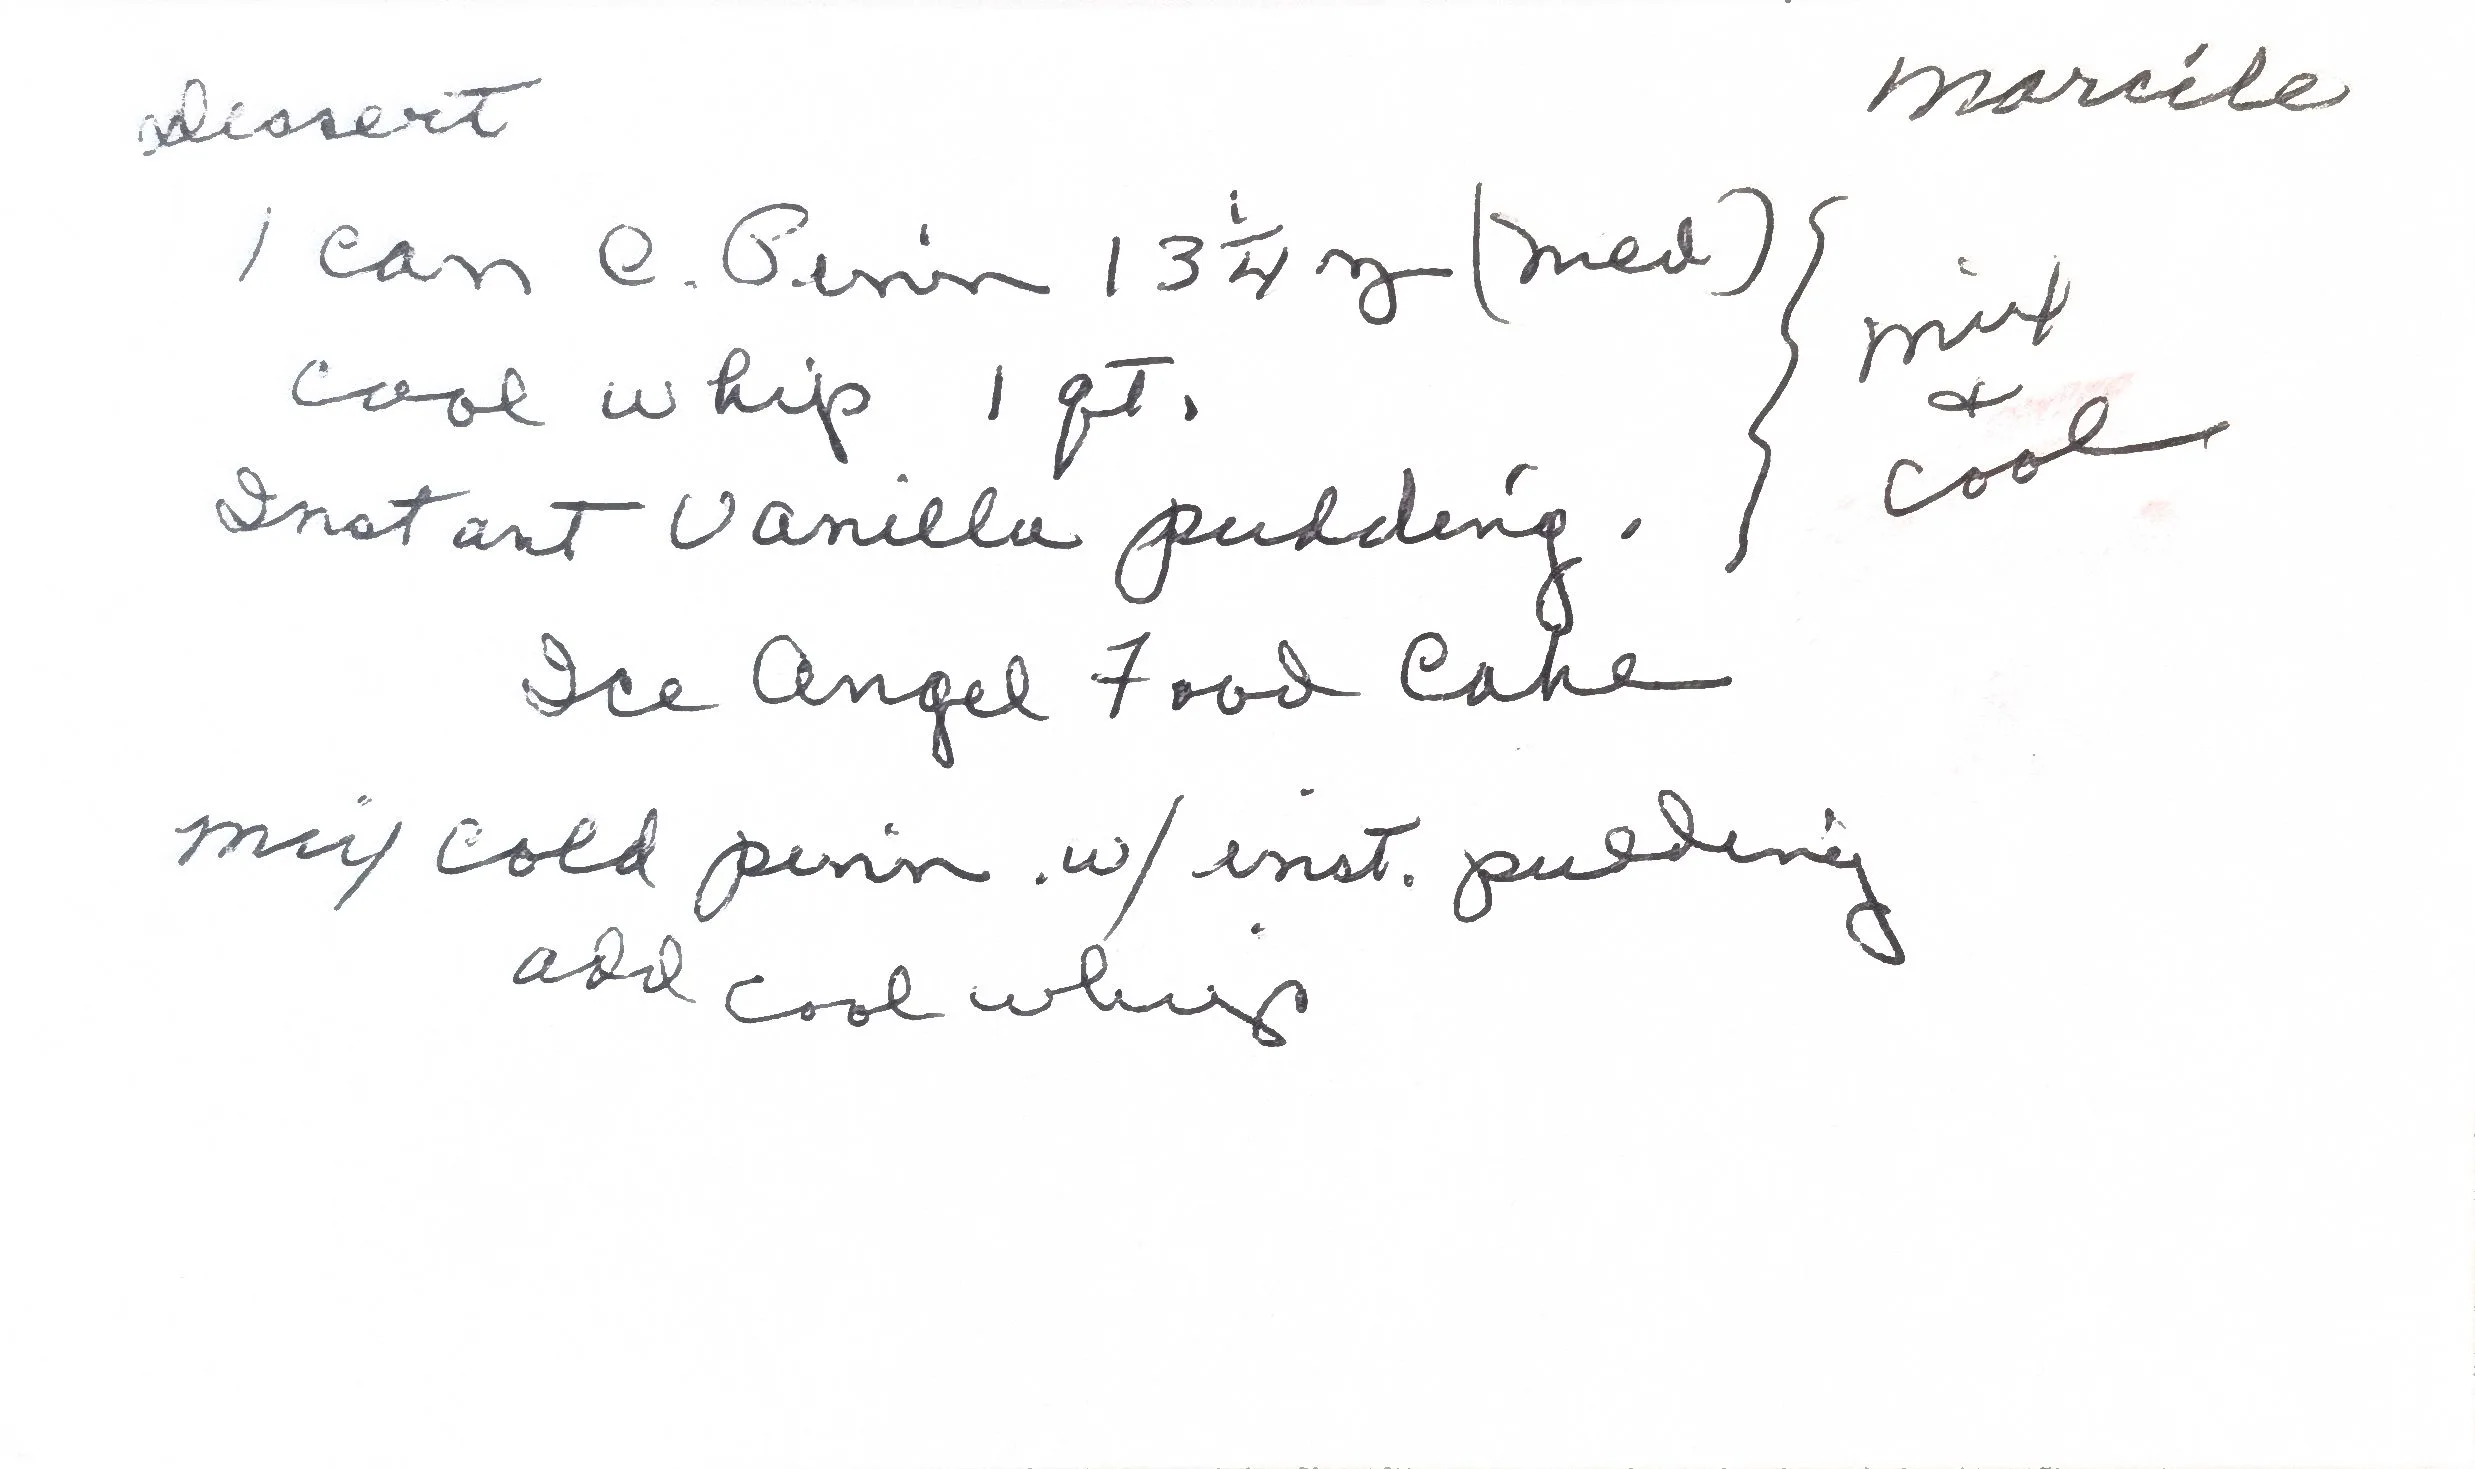 Dessert Marcile
1 can C. Pinin 13 1/4 oz (med) } mix
& cool
Cool whip 1 qt.
Instant Vanilla pudding.
Ice Angel Food Cake
Mix cold pinin . w/ inst. pudding
add cool whip